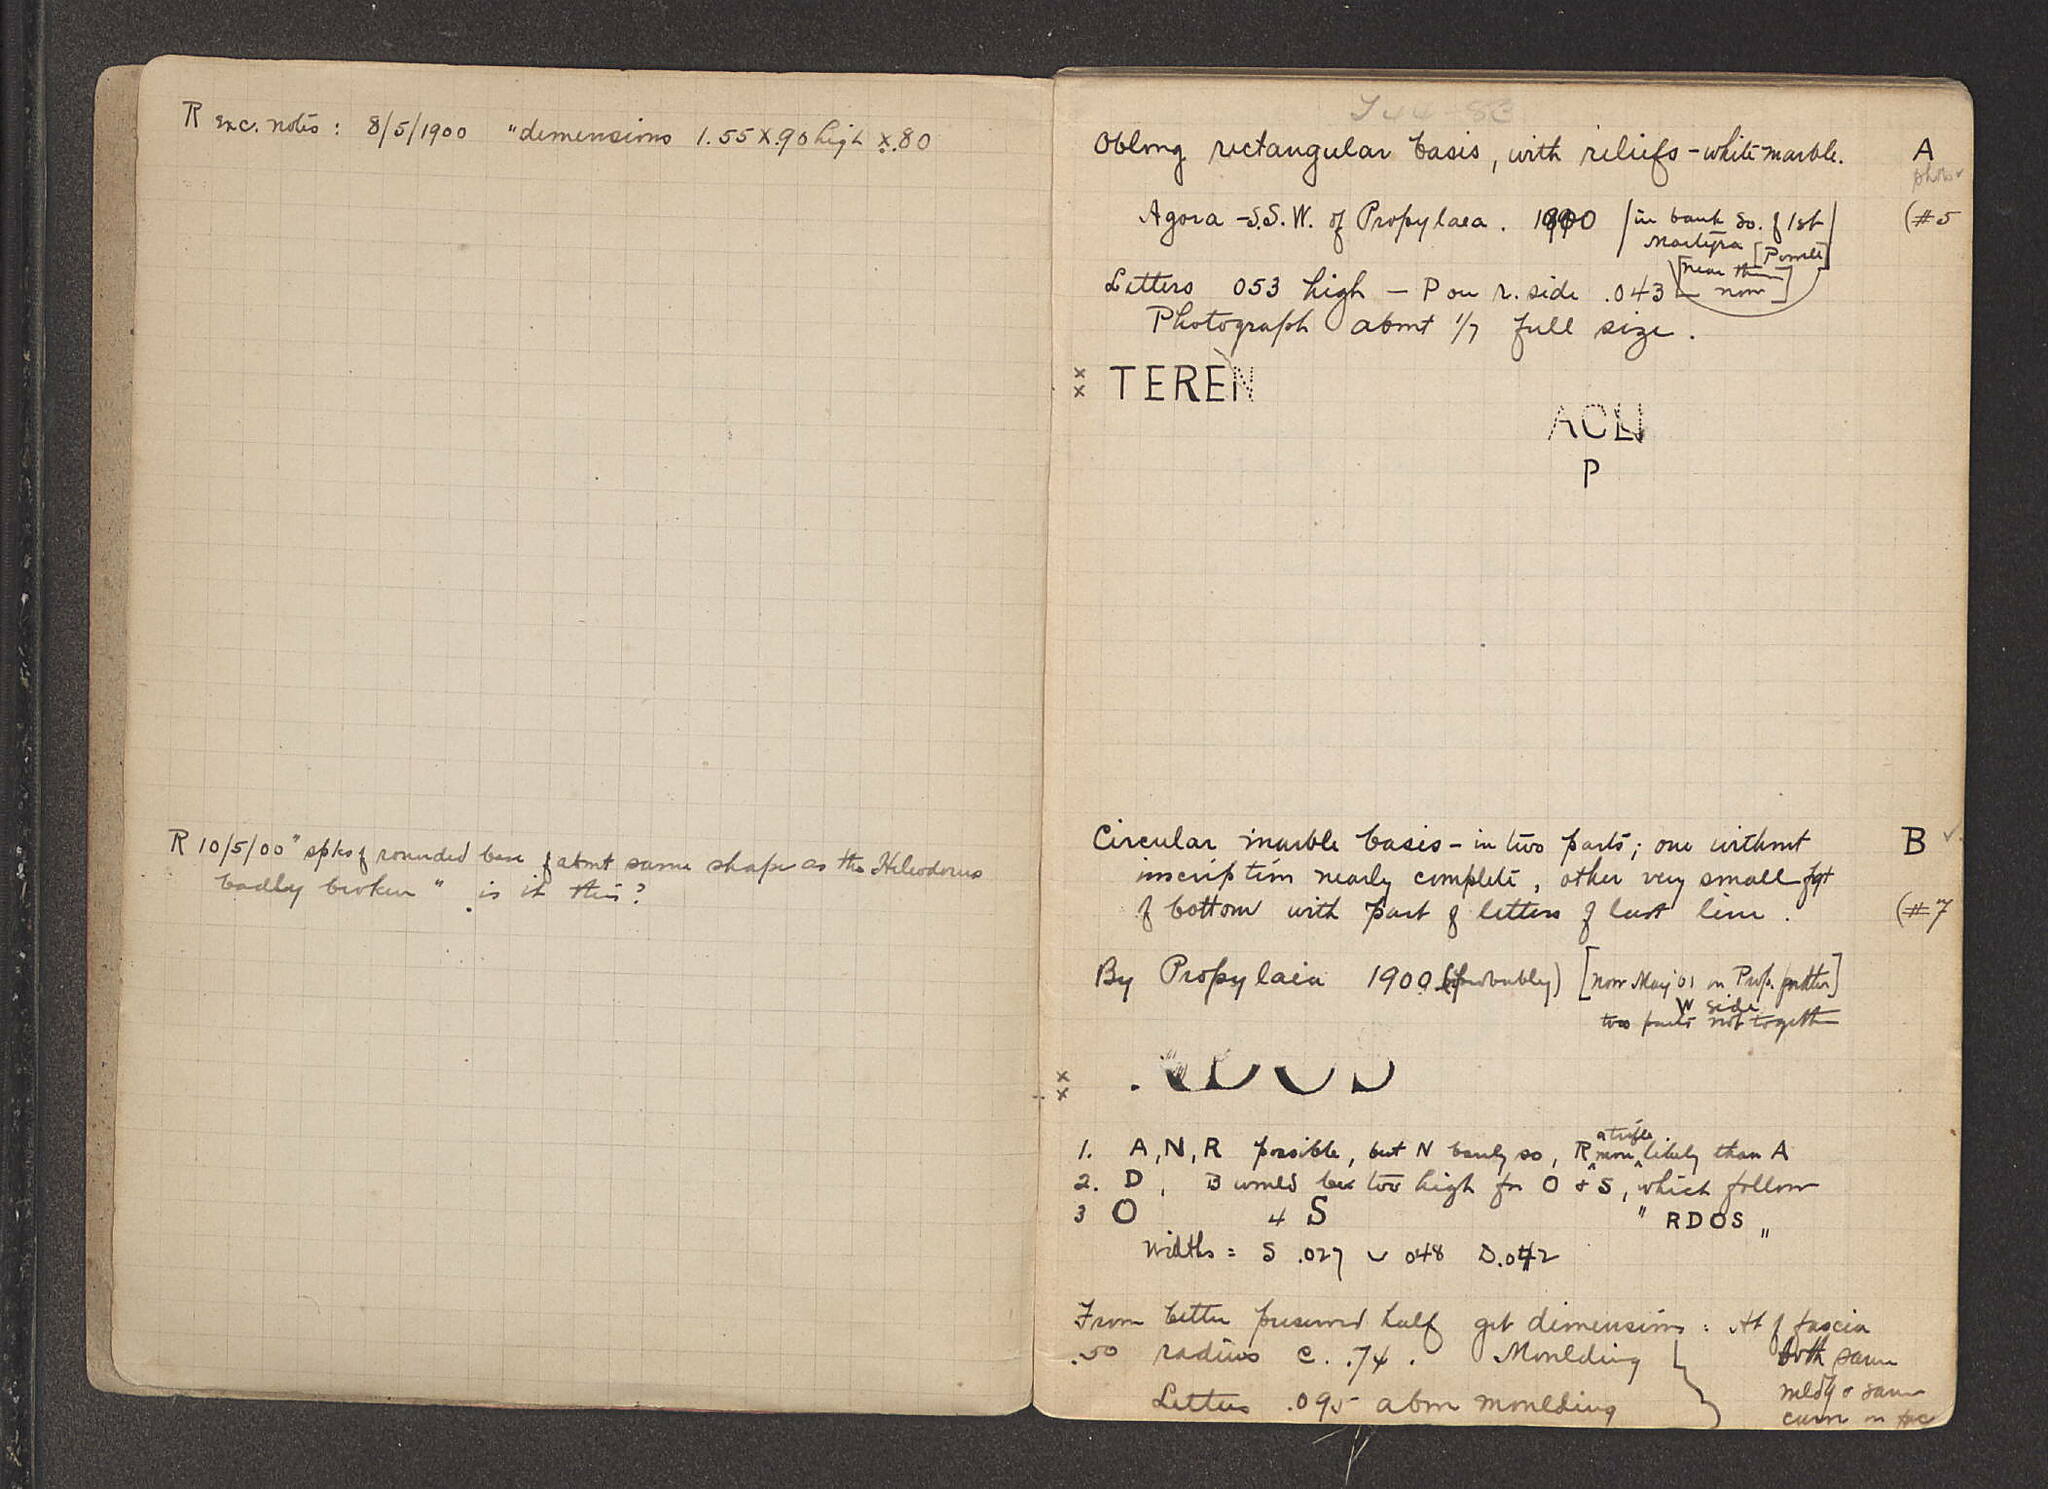 R exc. notes : 8/5/1900 "dimensions 1.55 x .90 high x .80
R 10/5/00 " spks of rounded base of about same shape as the Heliodorus
badly broken " is it this?
Oblong rectangular basis, with reliefs - white marble. A
photo
Agora - S.S.W. of Propylaea . 1900 (in bank so. of 1st (#5
Martyra [Powell]
[near there
now]
Letters 053 high - P on r. side .043
Photograph about 1/7 full size .
x x TEREN
ACLI
P
Circular marble basis - in two parts; one without B ✓
inscription nearly complete, other very small fgt
of bottom with part of letters of last line . (#7
By Propylaea 1900 (probably) [now May '01 on Prop.
W side
two parts not together
x x . RDOS
1. A, N, R possible, but N barely so, R a trifle more likely than A
2. D , B would be too high for O & S, which follow
3 O 4 S " RDOS "
Widths = S .027 O 048 D .042
From better preserved half get dimensions : Ht of fascia
.50 radius c. .74 . Moulding both same
mldg & same
curve on
Letters .095 above moulding